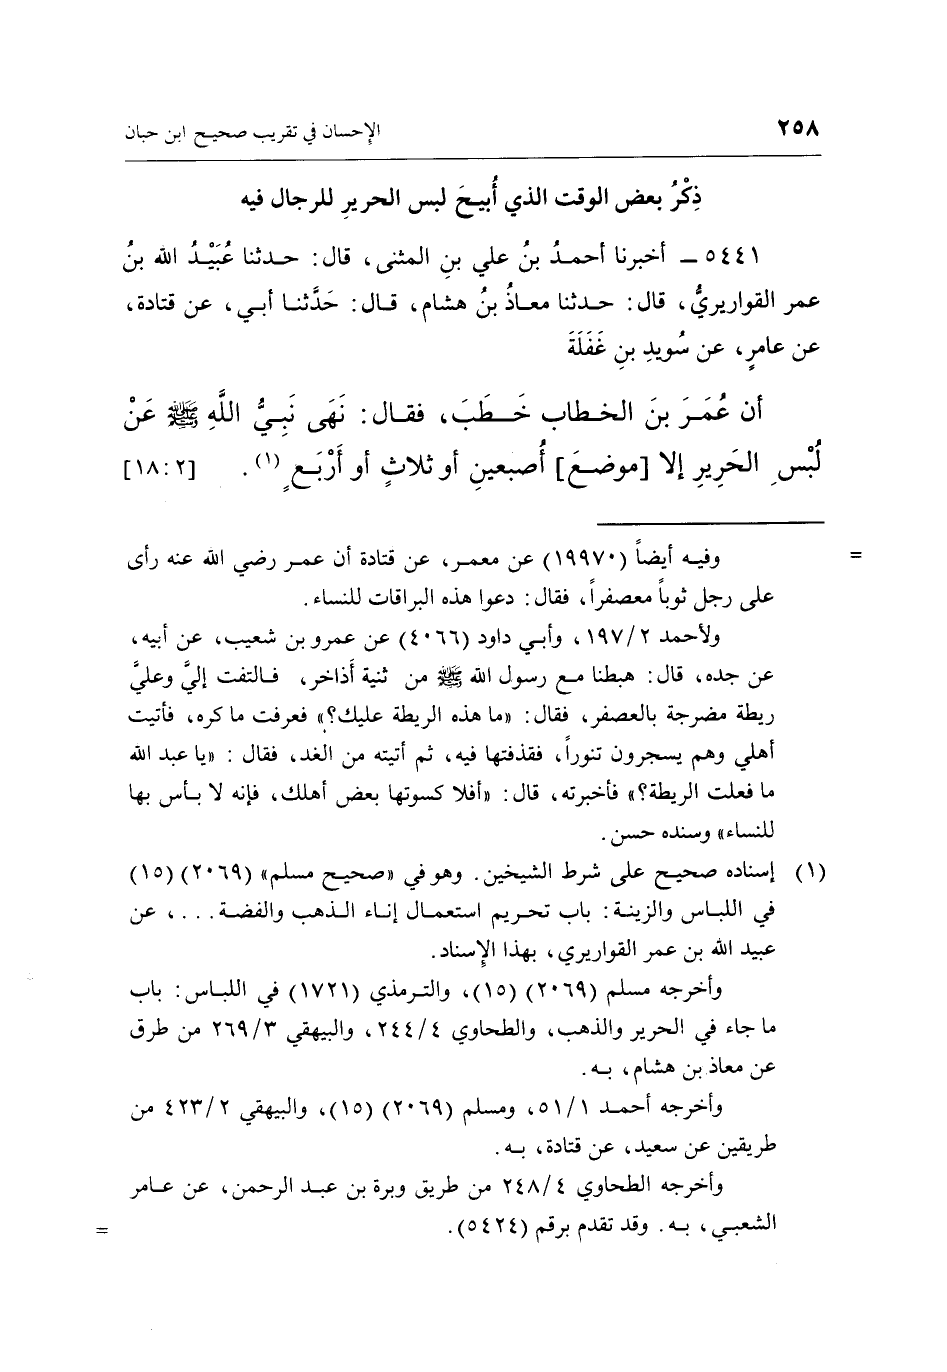 ٢٥٨ الإحسان في تقريب صحيح ابن حبان
ذِكْرُ بعض الوقت الذي أُبيحَ لبس الحريرِ للرجال فيه
٥٤٤١ ـ أخبرنا أحمدُ بنُ علي بنِ المثنى، قال: حدثنا عُبَيْدُ الله بنُ
عمر القواريريُّ، قال: حدثنا معاذُ بنُ هشام، قال: حَدَّثنا أبي، عن قتادة،
عن عامرٍ، عن سُويدِ بنِ غَفَلَةَ
أن عُمَرَ بنَ الخطاب خَطَبَ، فقال: نَهَى نَبِيُّ اللَّهِ ﷺ عَنْ
لُبْسِ الحَرِيرِ إلا [موضعَ] أُصبعينِ أو ثلاثٍ أو أَرْبَعٍ (١). [٢ : ١٨]
= وفيه أيضاً (١٩٩٧٠) عن معمر، عن قتادة أن عمر رضي الله عنه رأى
على رجل ثوباً معصفراً، فقال: دعوا هذه البراقات للنساء.
ولأحمد ١٩٧/٢، وأبي داود (٤٠٦٦) عن عمرو بن شعيب، عن أبيه،
عن جده، قال: هبطنا مع رسول الله ﷺ من ثنية أَذاخر، فالتفت إليَّ وعليَّ
ريطة مضرجة بالعصفر، فقال: «ما هذه الريطة عليك؟» فعرفت ما كره، فأتيت
أهلي وهم يسجرون تنوراً، فقذفتها فيه، ثم أتيته من الغد، فقال : «يا عبد الله
ما فعلت الريطة؟» فأخبرته، قال: «أفلا كسوتها بعض أهلك، فإنه لا بأس بها
للنساء» وسنده حسن.
(١) إسناده صحيح على شرط الشيخين. وهو في «صحيح مسلم» (٢٠٦٩) (١٥)
في اللباس والزينة: باب تحريم استعمال إناء الذهب والفضة ...، عن
عبيد الله بن عمر القواريري، بهذا الإسناد.
وأخرجه مسلم (٢٠٦٩) (١٥)، والترمذي (١٧٢١) في اللباس: باب
ما جاء في الحرير والذهب، والطحاوي ٢٤٤/٤، والبيهقي ٢٦٩/٣ من طرق
عن معاذ بن هشام، به.
وأخرجه أحمد ٥١/١، ومسلم (٢٠٦٩) (١٥)، والبيهقي ٤٢٣/٢ من
طريقين عن سعيد، عن قتادة، به.
وأخرجه الطحاوي ٢٤٨/٤ من طريق وبرة بن عبد الرحمن، عن عامر
الشعبي، به. وقد تقدم برقم (٥٤٢٤). =